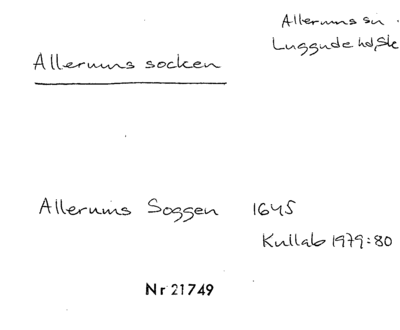 Allerums sn.
Luggude hd, Sk
Allerums socken
Allerums Soggen 1645
Kullab 1979:80
Nr 21749